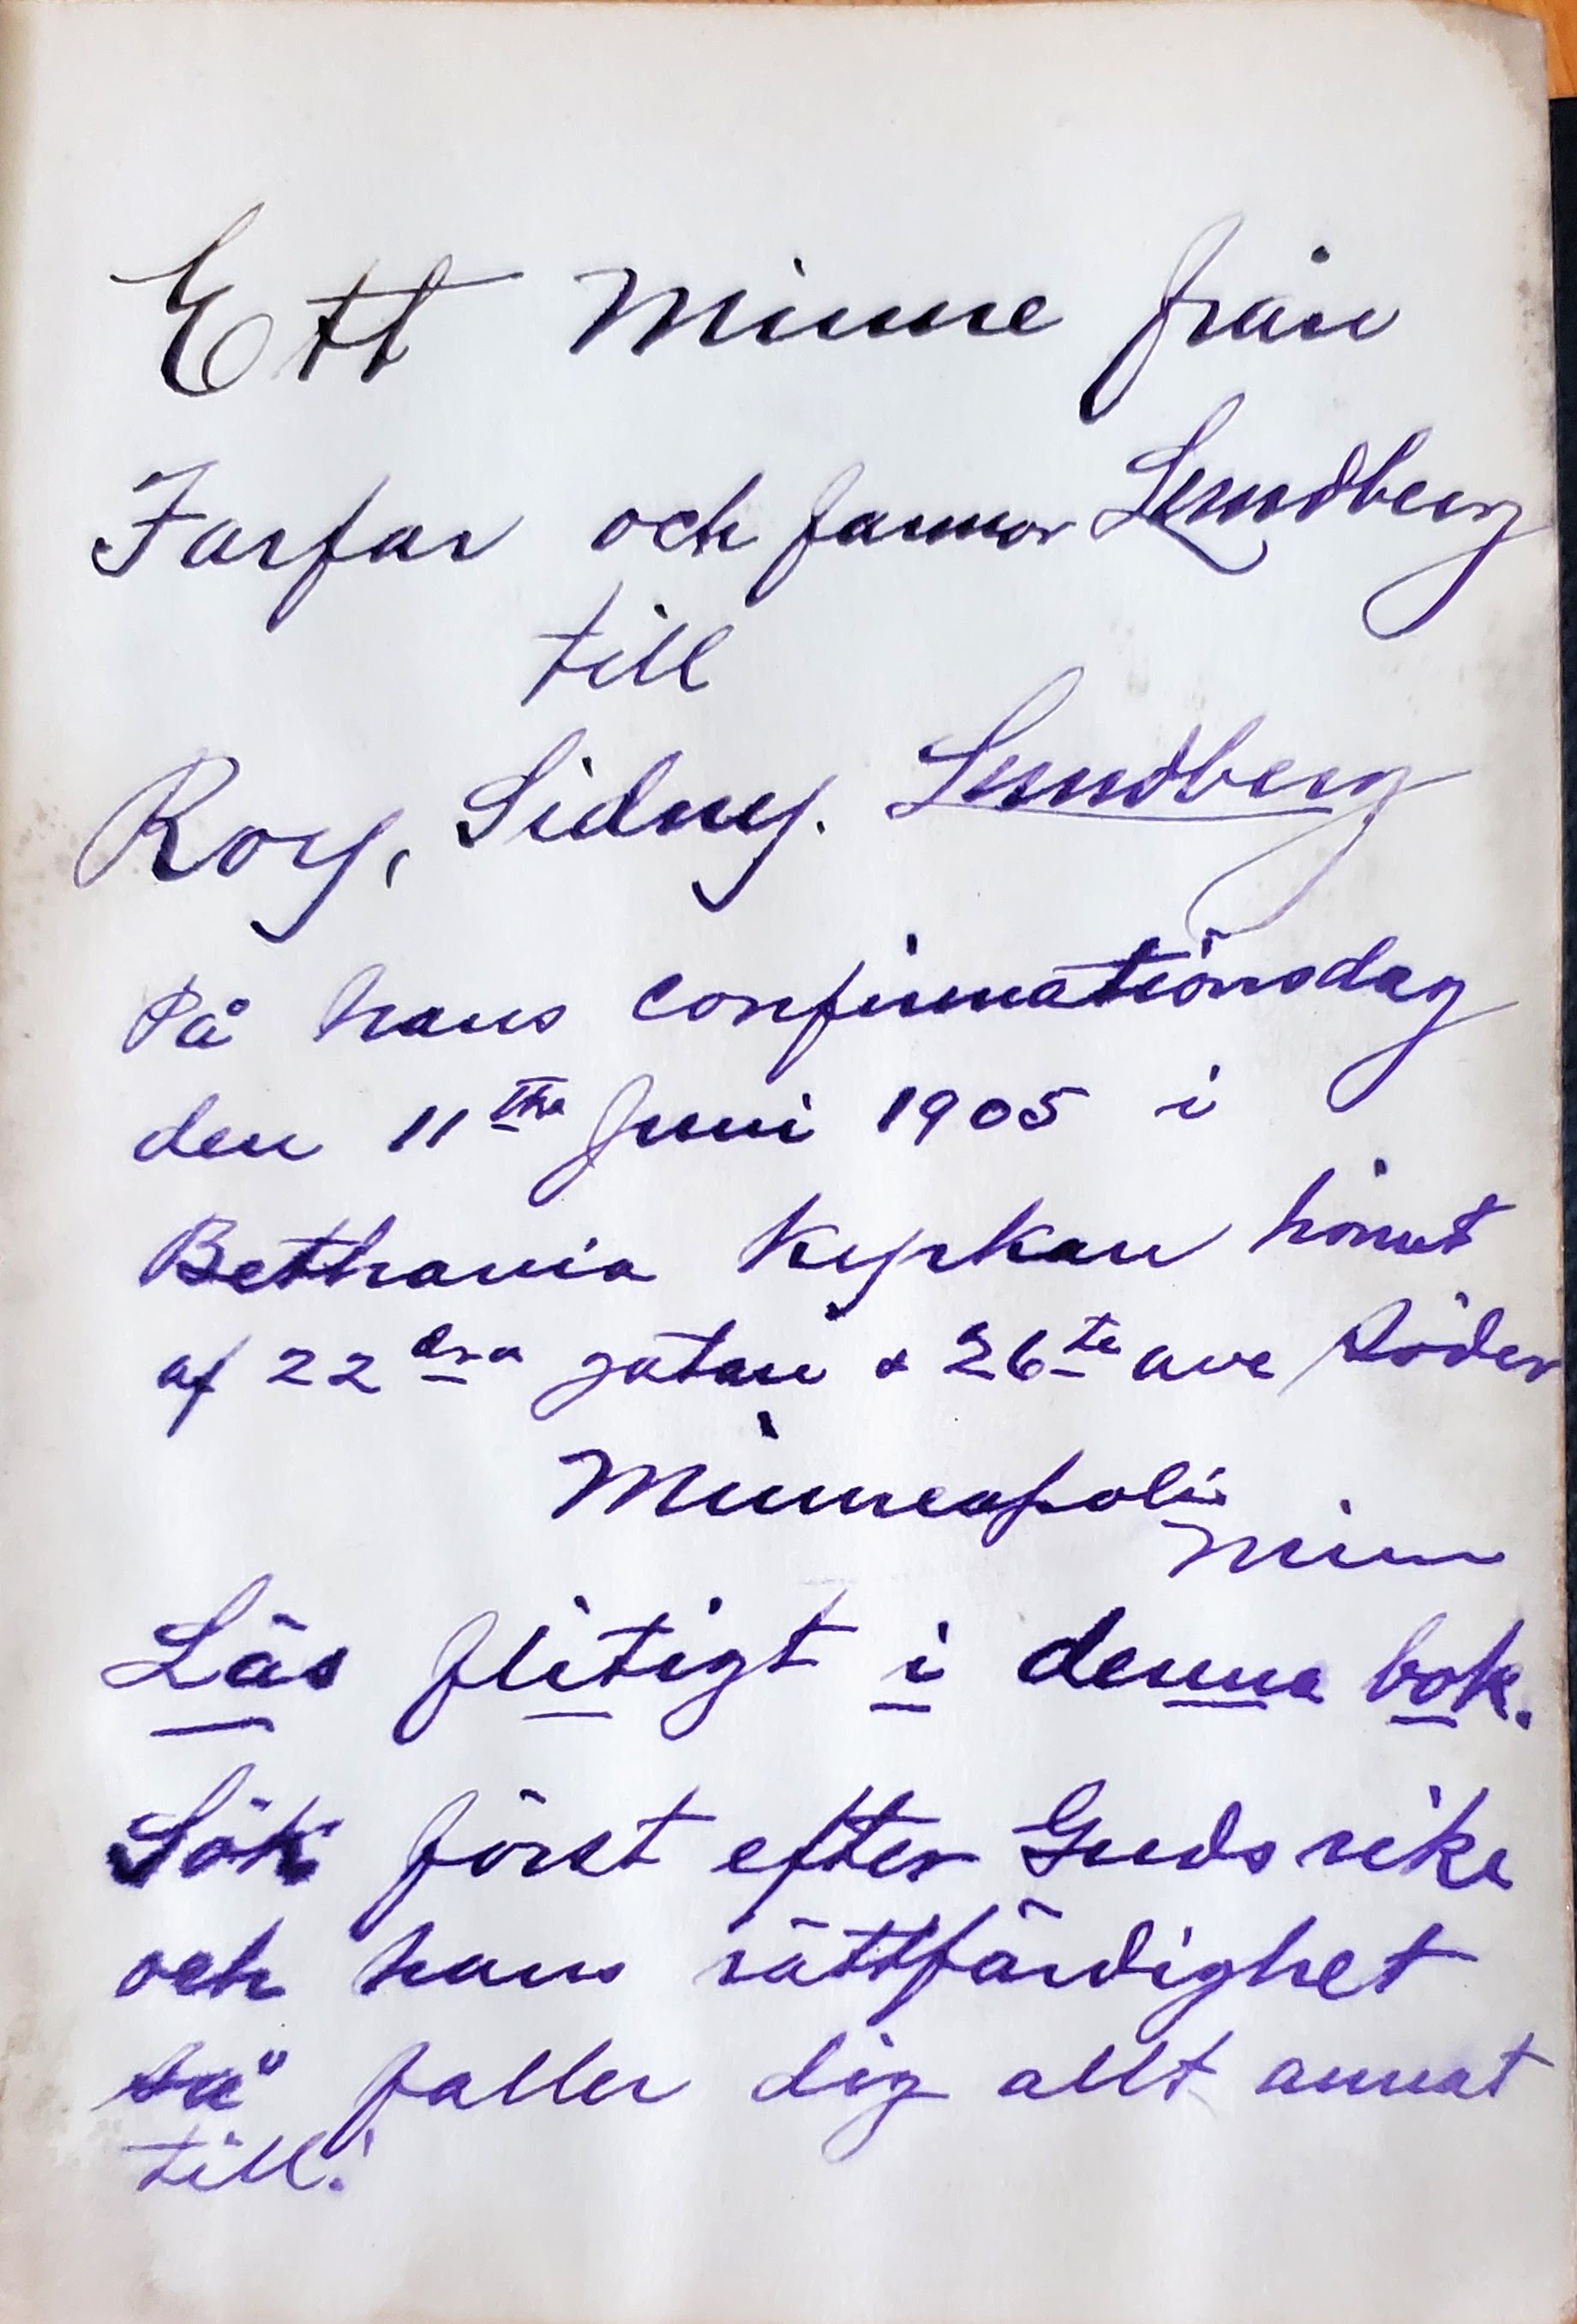 Ett Minne från
Farfar och farmor Lundberg
till
Roy, Sidney. Lundberg
På hans confirmationsdag
den 11the Juni 1905 i
Bethania Kyrkan hörnet
af 22dra gatan & 26te ave Söder
Minneapolis
Minn
Läs flitigt i denna bok.
Sök först efter Guds rike
och hans rättfärdighet
så faller dig allt annat
till!